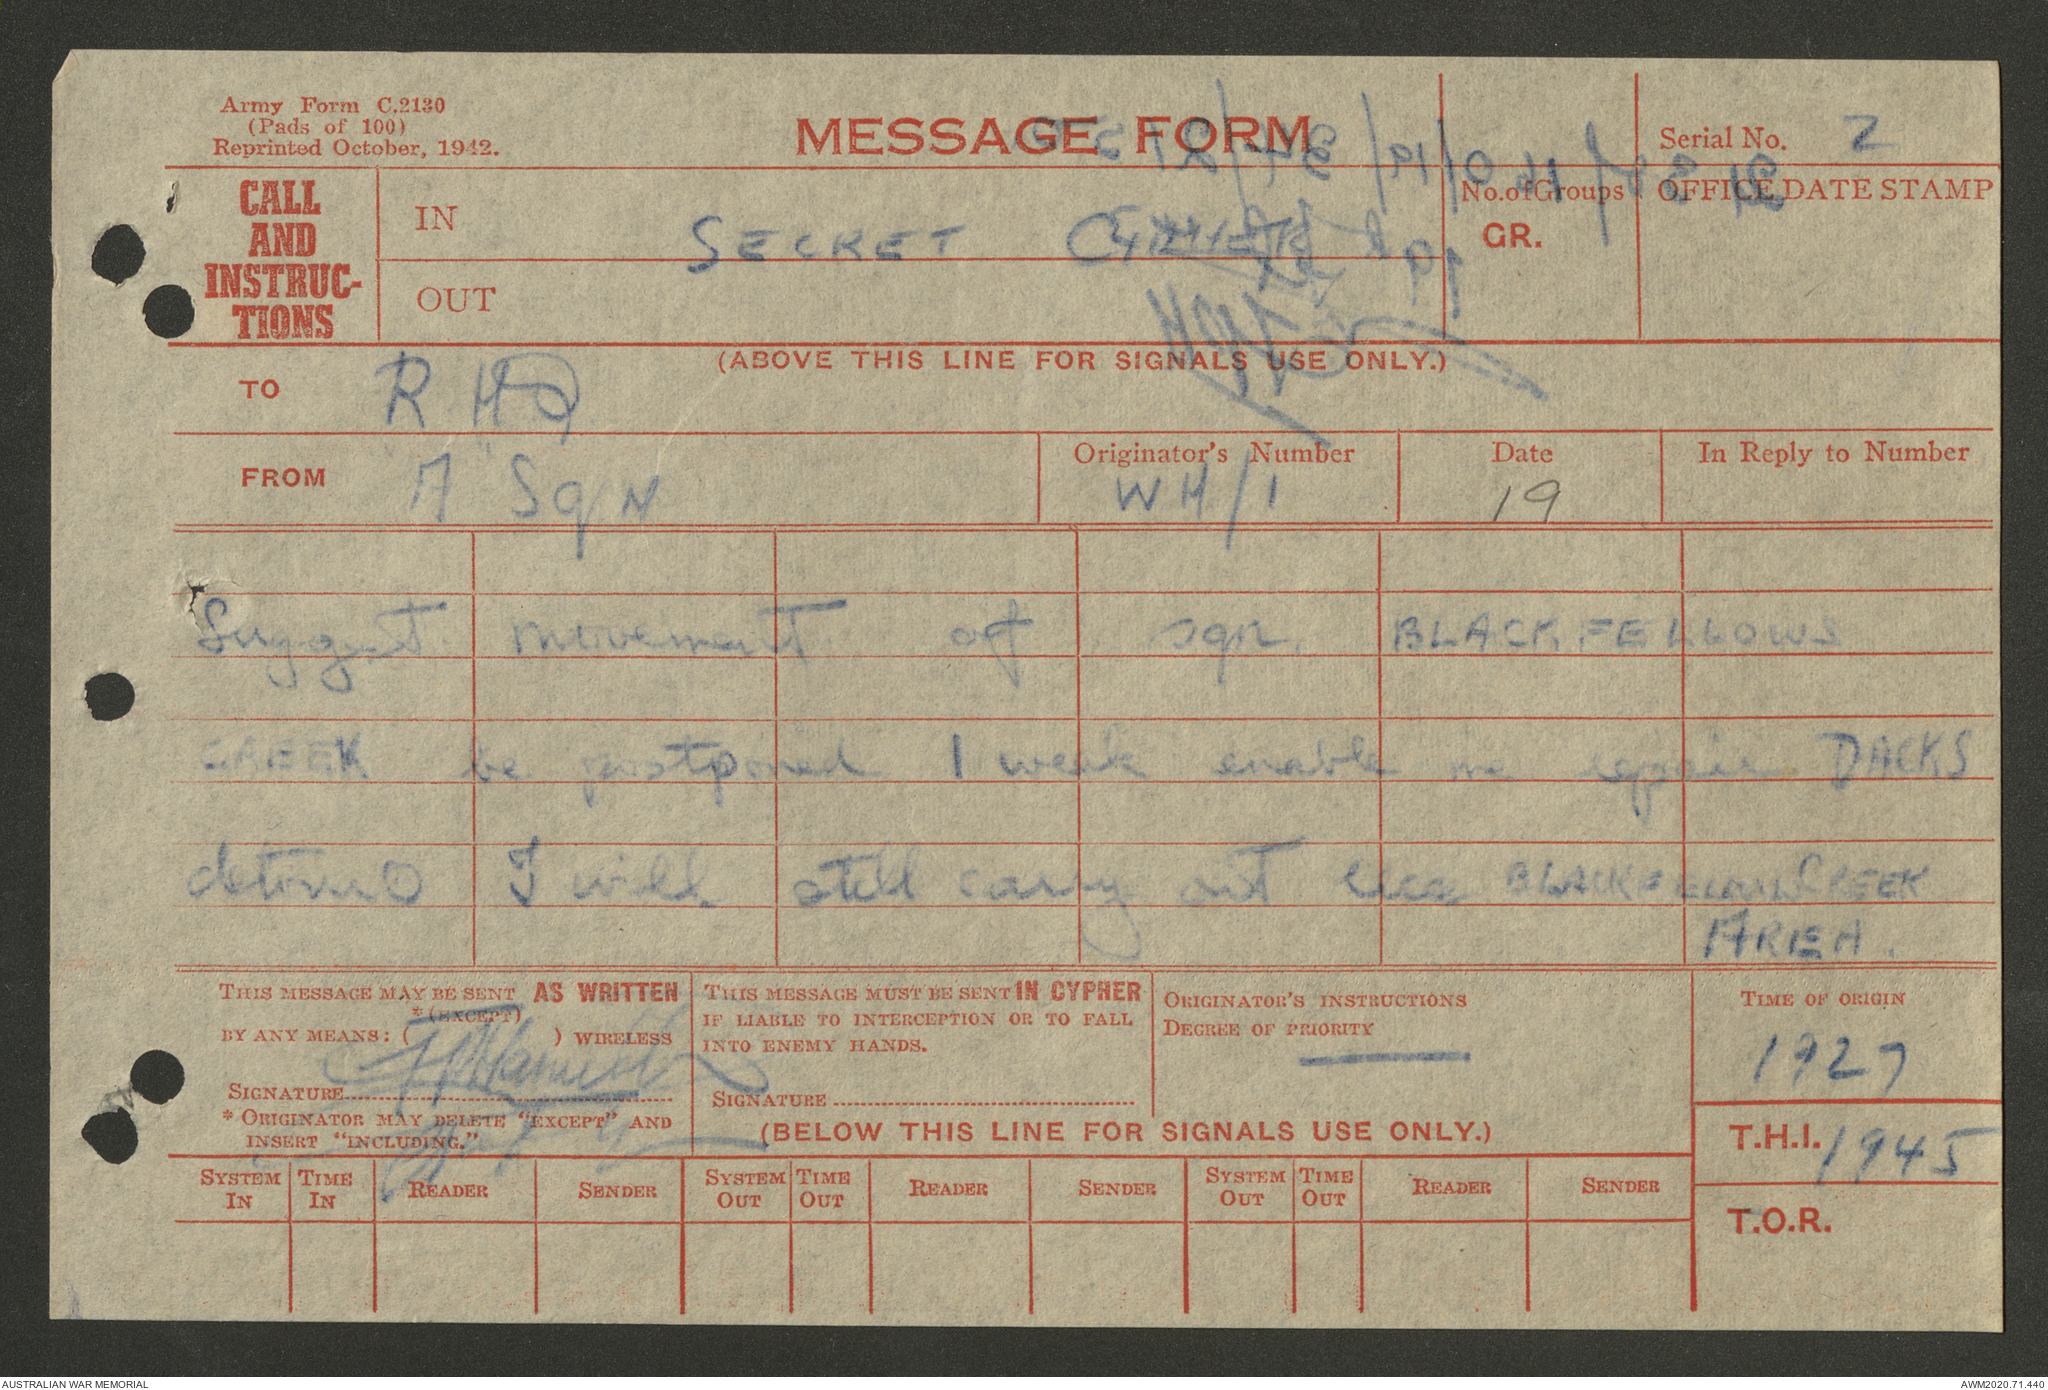 Army Form C.2130
(Pads of 100)
Reprinted October, 1942.
MESSAGE FORM
Serial No. 2
CALL
AND
INSTRUC-
TIONS
IN
OUT
SECRET
No. of Groups
GR.
OFFICE DATE STAMP
(ABOVE THIS LINE FOR SIGNALS USE ONLY.)
TO R HQ
FROM "A" Sqn
Originator's Number
WH/1
Date
19
In Reply to Number
Suggest movement of sqn. BLACKFELLOWS
CREEK be postponed 1 week enable me repair DACKS
detour O I will still carry out BLACKFELLOW CREEK
AREA.
THIS MESSAGE MAY BE SENT AS WRITTEN
* (EXCEPT)
BY ANY MEANS: ( ) WIRELESS
SIGNATURE
* ORIGINATOR MAY DELETE "EXCEPT" AND
INSERT "INCLUDING."
THIS MESSAGE MUST BE SENT IN CYPHER
IF LIABLE TO INTERCEPTION OR TO FALL
INTO ENEMY HANDS.
SIGNATURE
ORIGINATOR'S INSTRUCTIONS
DEGREE OF PRIORITY
TIME OF ORIGIN
1927
(BELOW THIS LINE FOR SIGNALS USE ONLY.)
T.H.I. 1945
T.O.R.
SYSTEM IN
TIME IN
READER
SENDER
SYSTEM OUT
TIME OUT
READER
SENDER
SYSTEM OUT
TIME OUT
READER
SENDER
AUSTRALIAN WAR MEMORIAL
AWM2020.71.440